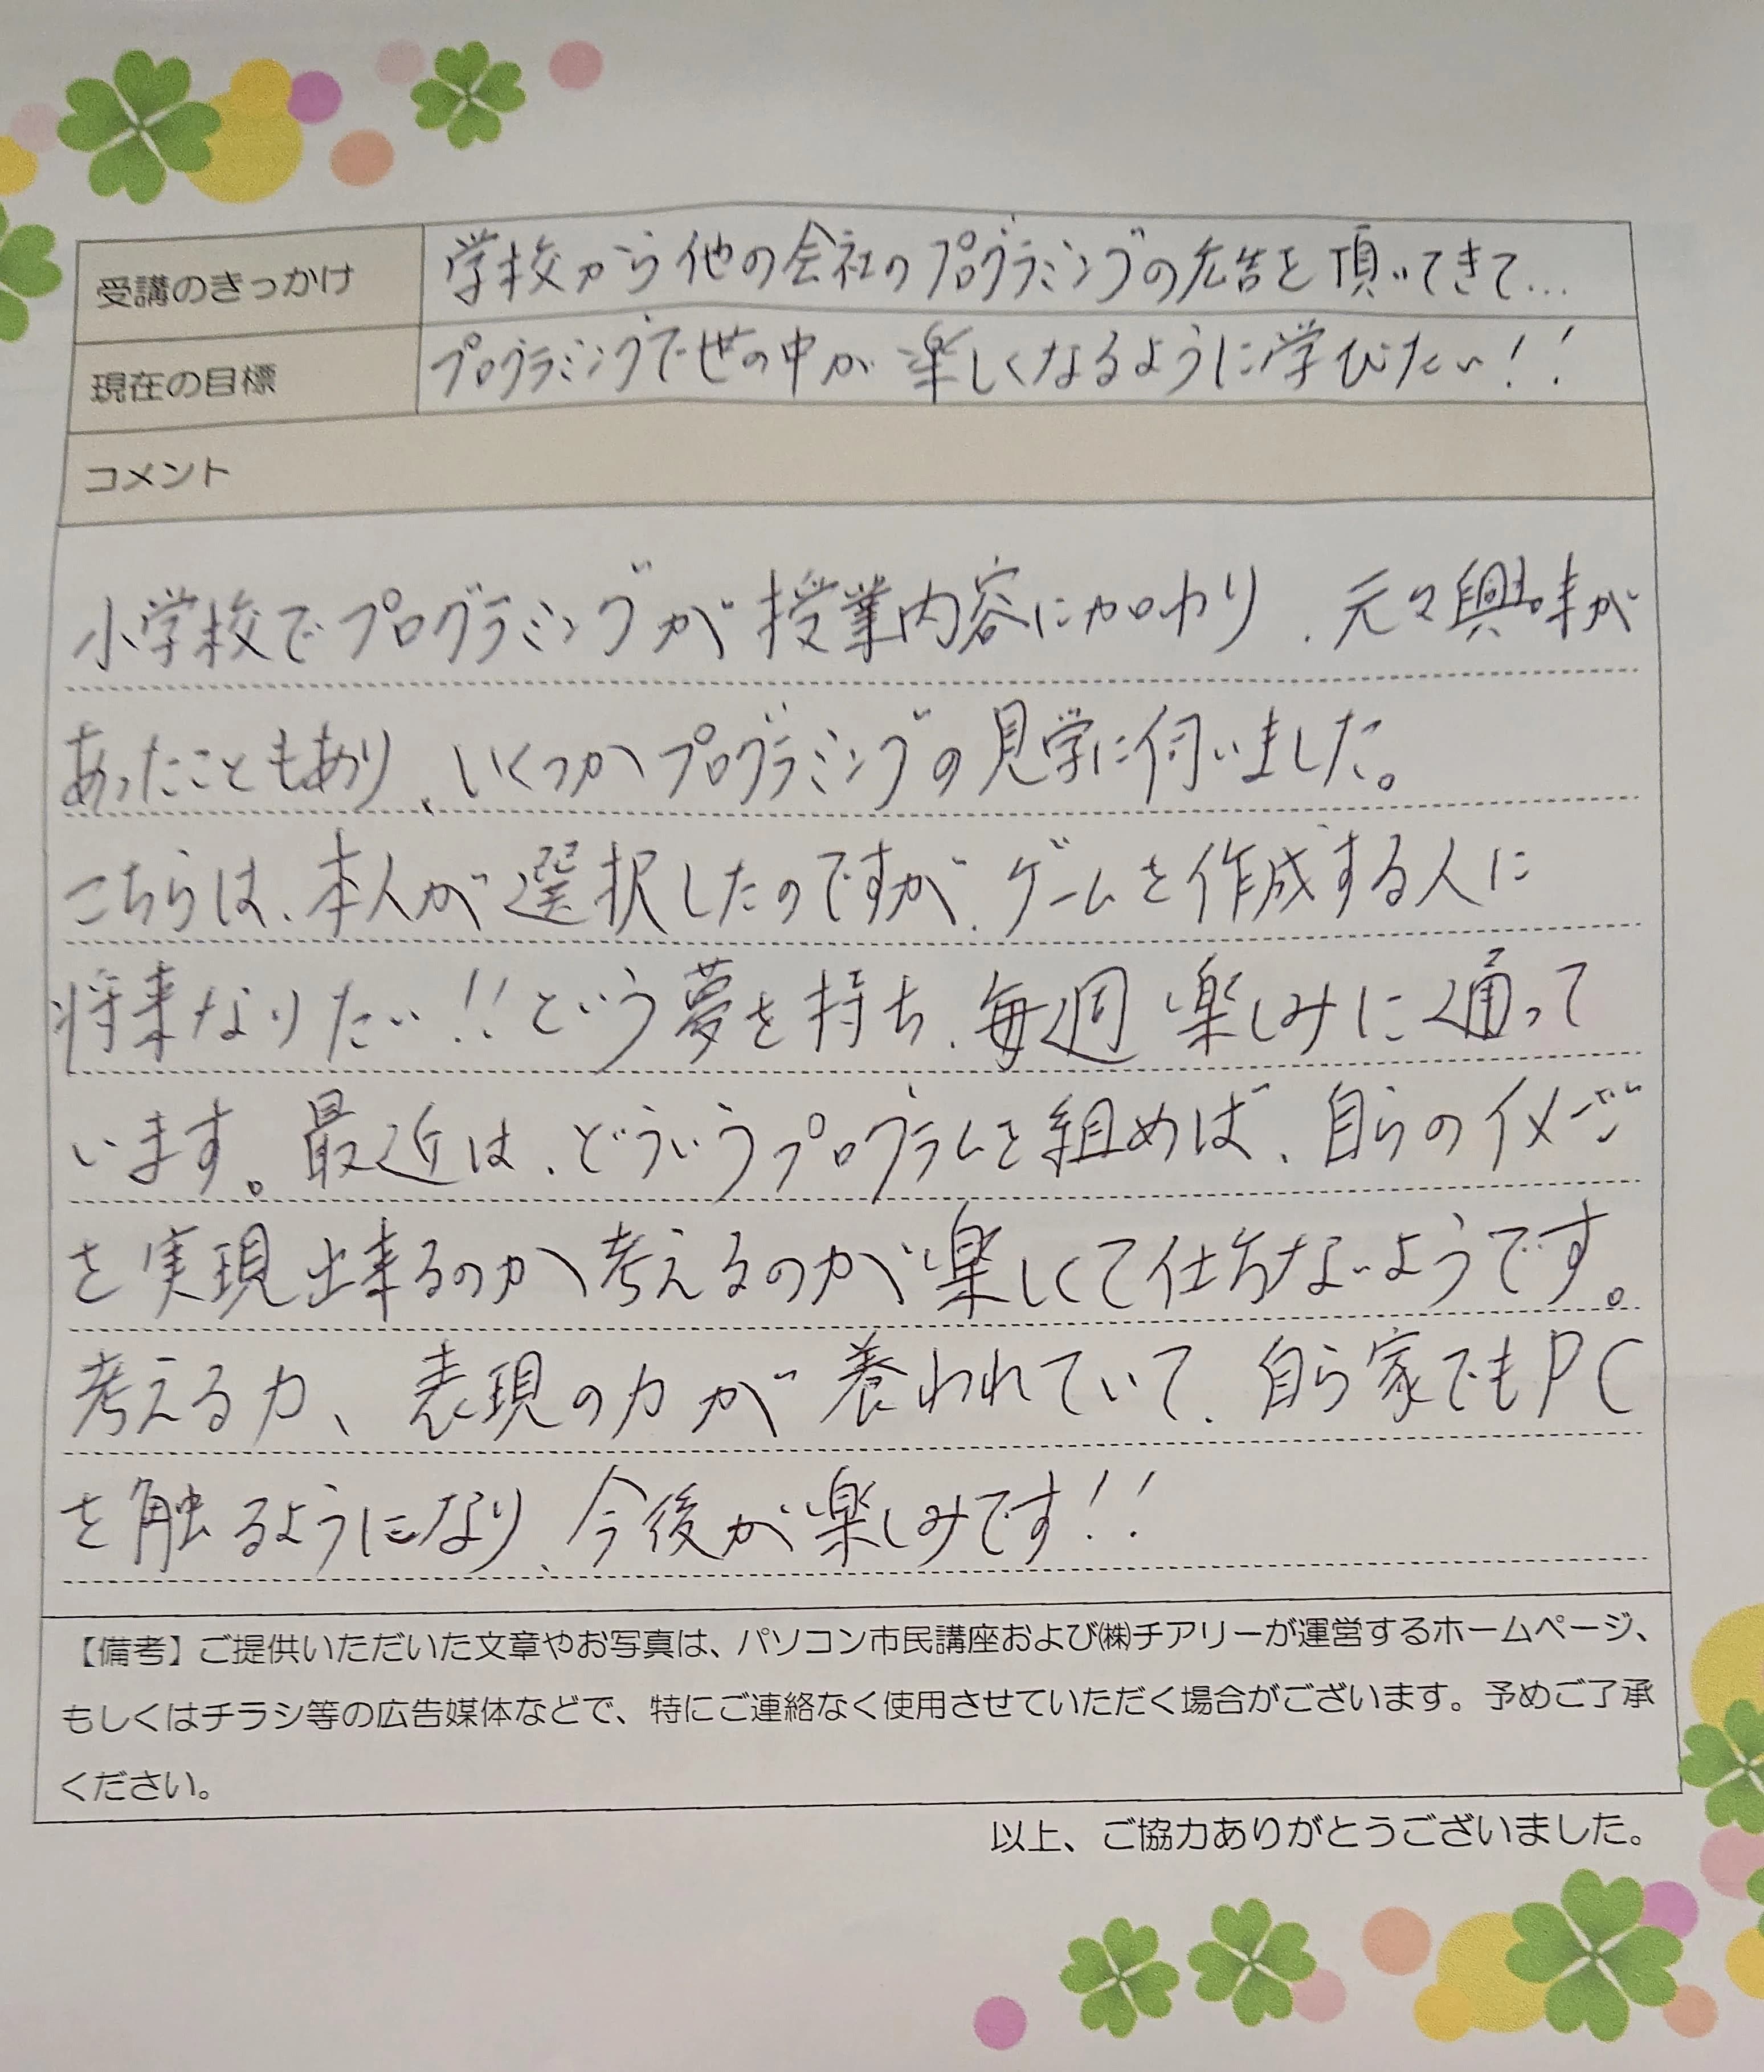 受講のきっかけ 学校から他の会社のプログラミングの広告を頂いてきて…
現在の目標 プログラミングで世の中が楽しくなるように学びたい!!
コメント
小学校でプログラミングが授業内容に加わり、元々興味が
あったこともあり、いくつかプログラミングの見学に伺いました。
こちらは、本人が選択したのですが、ゲームを作成する人に
将来なりたい!!という夢を持ち、毎週楽しみに通って
います。最近は、どういうプログラムを組めば、自らのイメージ
を実現出来るのか考えるのが楽しくて仕方ないようです。
考える力、表現の力が養われていて、自ら家でもPC
を触るようになり、今後が楽しみです!!
【備考】ご提供いただいた文章やお写真は、パソコン市民講座および㈱チアリーが運営するホームページ、
もしくはチラシ等の広告媒体などで、特にご連絡なく使用させていただく場合がございます。予めご了承
ください。
以上、ご協力ありがとうございました。